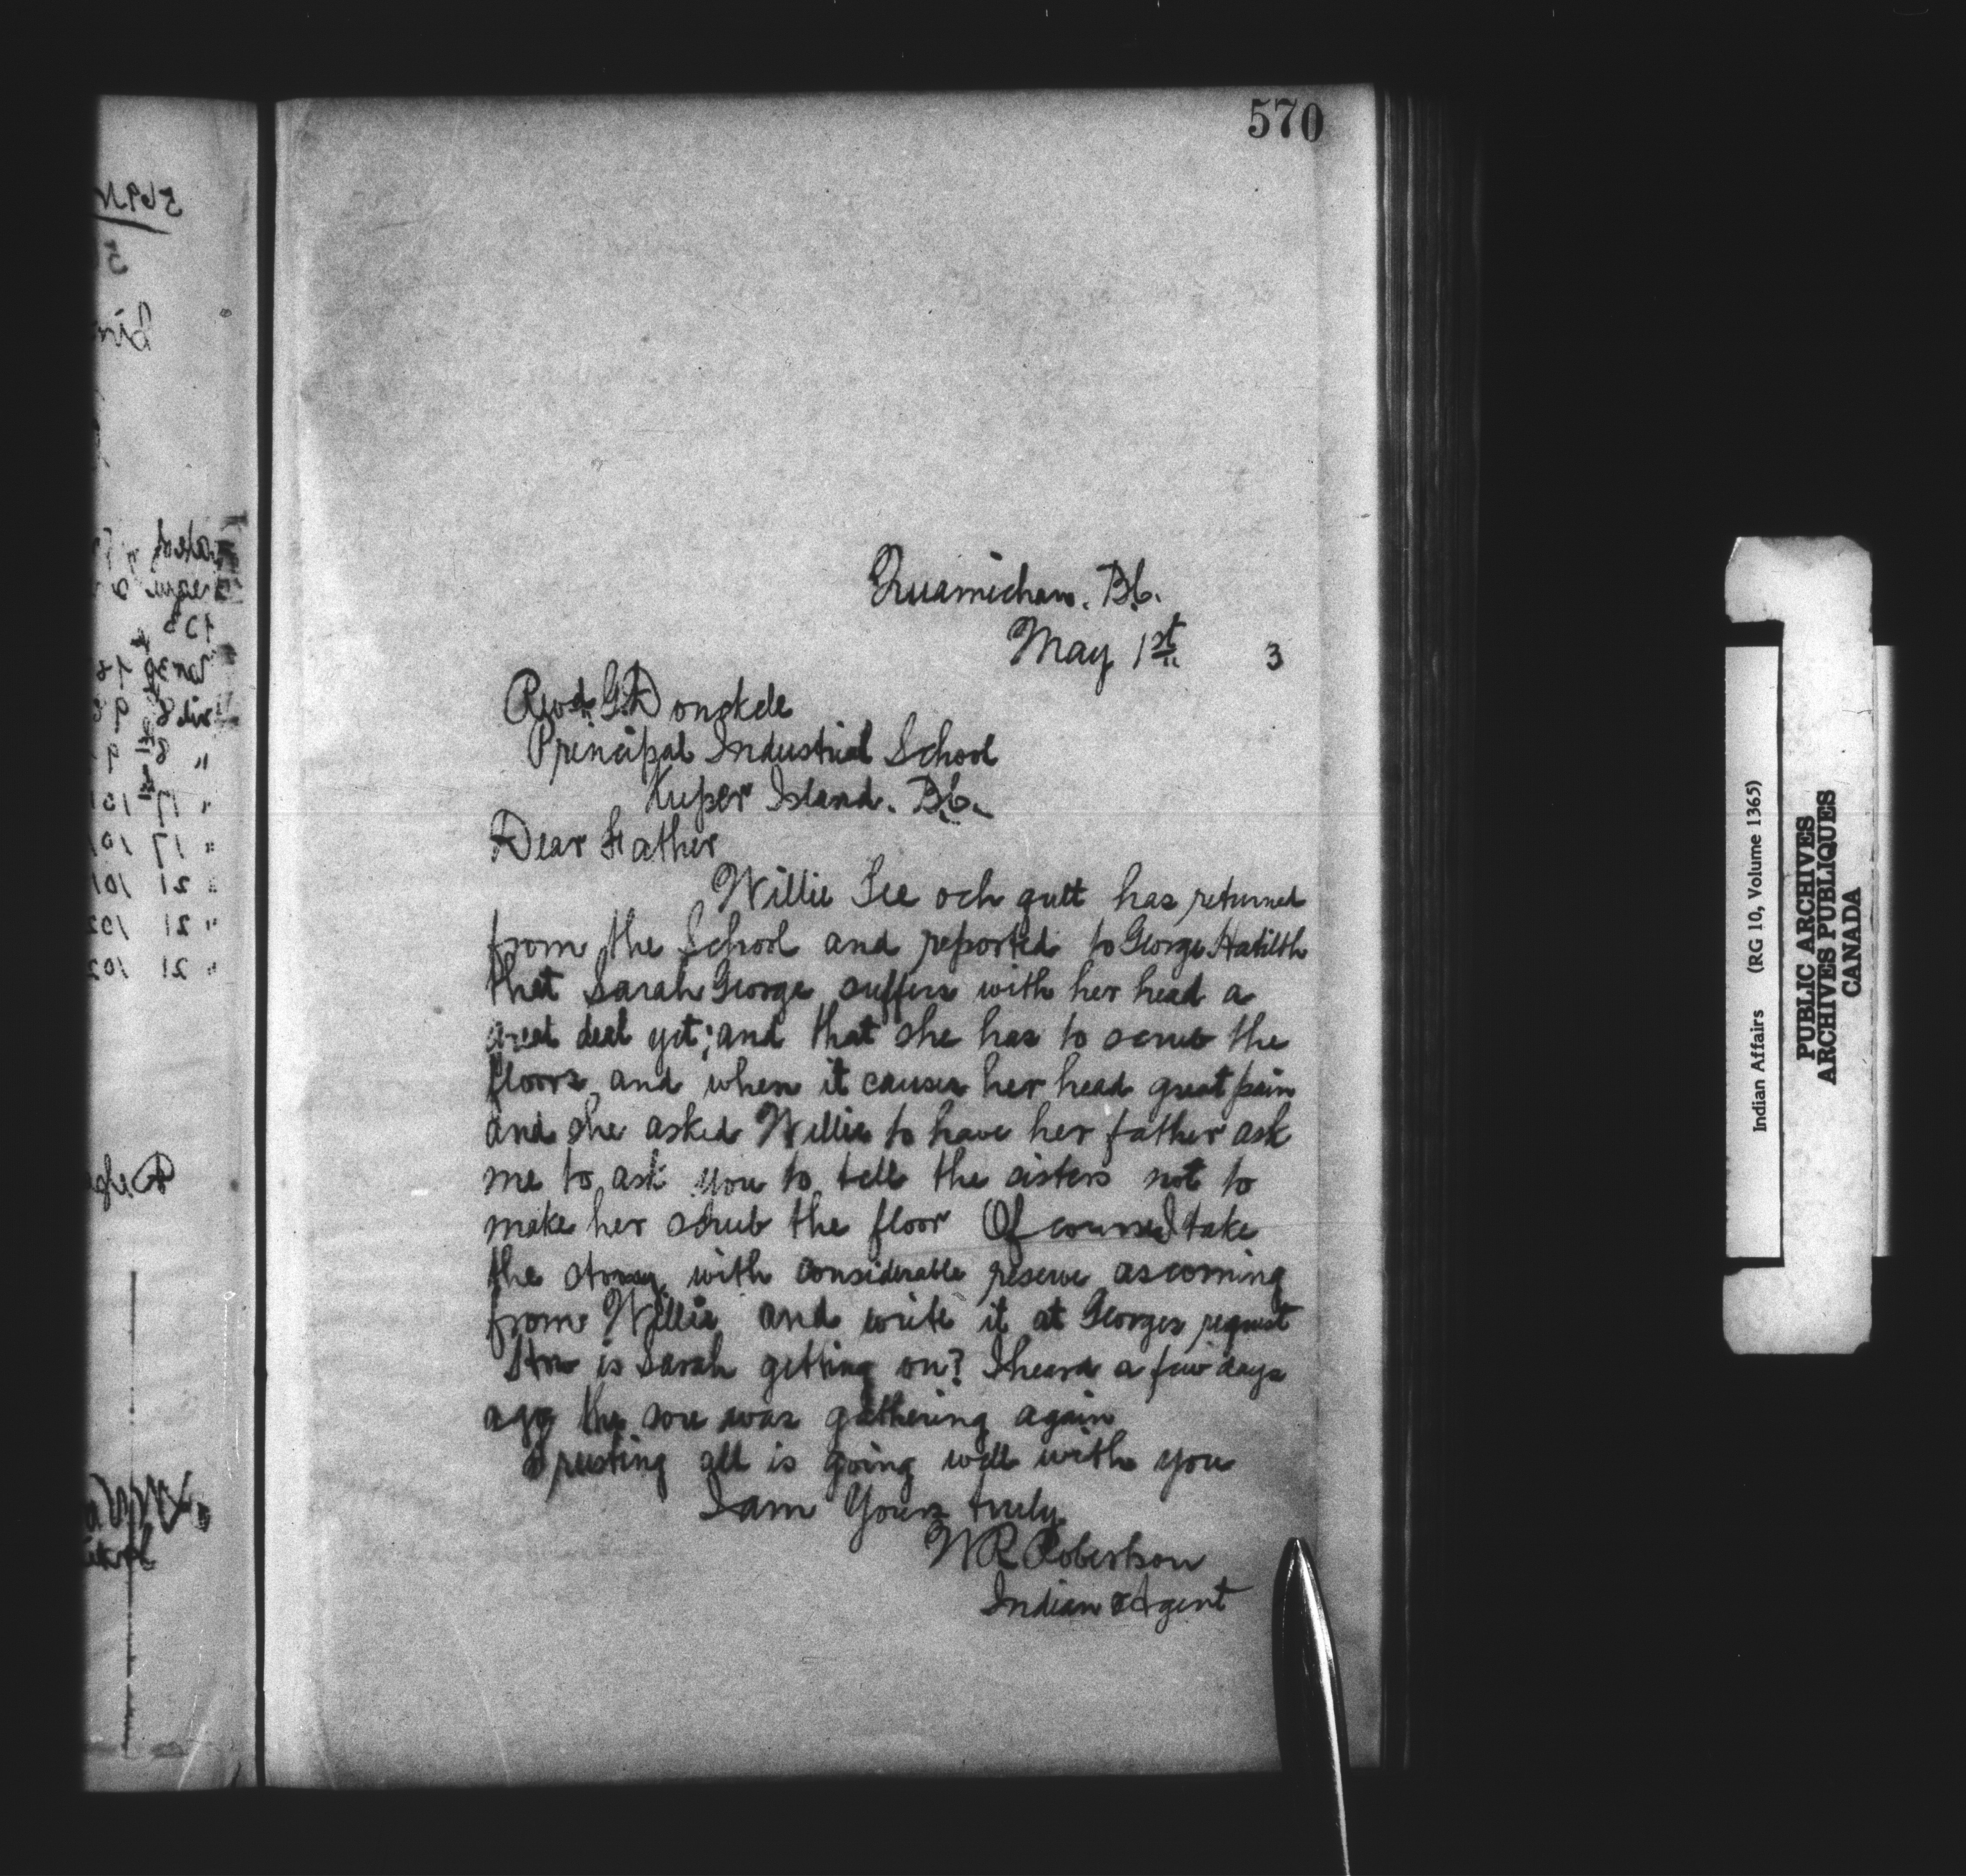 570
Quamichan. B.C.
May 1st 3
Revd. G. Donckele
Principal Industrial School
Kuper Island. B.C.
Dear Father
Willie See och qutt has returned
from the School and reported to George
that Sarah George suffers with her head a
great deal yet; and that she has to scrub the
floors and when it causes her head great pain
and she asked Willie to have her father ask
me to ask you to tell the sisters not to
make her scrub the floor Of course I take
the story with considerable reserve as coming
from Willie and write it at Georges request
How is Sarah getting on? I heard a few days
ago the sore was gathering again
Trusting all is going well with you
I am Yours truly
WR Robertson
Indian Agent
Indian Affairs (RG 10, Volume 1365)
PUBLIC ARCHIVES
ARCHIVES PUBLIQUES
CANADA